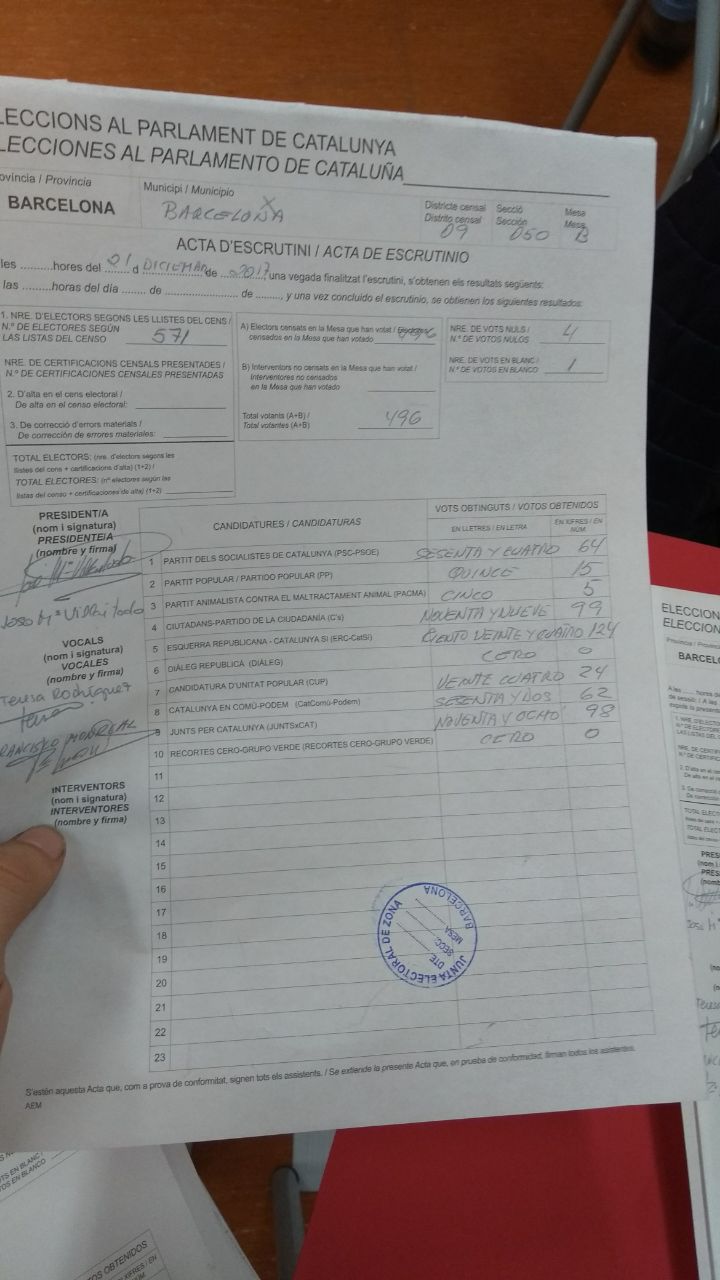 LECCIONS AL PARLAMENT DE CATALUNYA
LECCIONES AL PARLAMENTO DE CATALUÑA
ovíncia / Provincia
BARCELONA
Municipi / Municipio
BARCELONA
Districte censal
Distrito censal
09
Secció
Sección
050
Mesa
Mesa
B
ACTA D'ESCRUTINI / ACTA DE ESCRUTINIO
les .........hores del 21 d DICIEMBRE de 2017, una vegada finalitzat l'escrutini, s'obtenen els resultats següents:
las .........horas del día ...... de ........................ de ........, y una vez concluido el escrutinio, se obtienen los siguientes resultados:
1. NRE. D'ELECTORS SEGONS LES LLISTES DEL CENS /
N.º DE ELECTORES SEGÚN
LAS LISTAS DEL CENSO 571
NRE. DE CERTIFICACIONS CENSALS PRESENTADES /
N.º DE CERTIFICACIONES CENSALES PRESENTADAS
2. D'alta en el cens electoral /
De alta en el censo electoral:
3. De correcció d'errors materials /
De corrección de errores materiales:
TOTAL ELECTORS: (nre. d'electors segons les
llistes del cens + certificacions d'alta) (1+2) /
TOTAL ELECTORES: (nº electores según las
listas del censo + certificaciones de alta) (1+2)
A) Electors censats en la Mesa que han votat / Electores
censados en la Mesa que han votado 496
B) Interventors no censats en la Mesa que han votat /
Interventores no censados
en la Mesa que han votado
Total votants (A+B) /
Total votantes (A+B) 496
NRE. DE VOTS NULS /
N.º DE VOTOS NULOS 4
NRE. DE VOTS EN BLANC /
N.º DE VOTOS EN BLANCO 1
PRESIDENT/A
(nom i signatura)
PRESIDENTE/A
(nombre y firma)
Jose Mª
VOCALS
(nom i signatura)
VOCALES
(nombre y firma)
Teresa Rodríguez
INTERVENTORS
(nom i signatura)
INTERVENTORES
(nombre y firma)
CANDIDATURES / CANDIDATURAS
VOTS OBTINGUTS / VOTOS OBTENIDOS
EN LLETRES / EN LETRA
EN XIFRES / EN NÚM.
1 PARTIT DELS SOCIALISTES DE CATALUNYA (PSC-PSOE) SESENTA Y CUATRO 64
2 PARTIT POPULAR / PARTIDO POPULAR (PP) QUINCE 15
3 PARTIT ANIMALISTA CONTRA EL MALTRACTAMENT ANIMAL (PACMA) CINCO 5
4 CIUTADANS-PARTIDO DE LA CIUDADANÍA (C's) NOVENTA Y NUEVE 99
5 ESQUERRA REPUBLICANA - CATALUNYA SÍ (ERC-CatSí) CIENTO VEINTE Y CUATRO 124
6 DIÀLEG REPUBLICÀ (DIÀLEG) CERO 0
7 CANDIDATURA D'UNITAT POPULAR (CUP) VEINTE CUATRO 24
8 CATALUNYA EN COMÚ-PODEM (CatComú-Podem) SESENTA Y DOS 62
9 JUNTS PER CATALUNYA (JUNTSxCAT) NOVENTA Y OCHO 98
10 RECORTES CERO-GRUPO VERDE (RECORTES CERO-GRUPO VERDE) CERO 0
11
12
13
14
15
16
17
18
19
20
21
22
23
JUNTA ELECTORAL DE ZONA
BARCELONA
DTE
SECC.
MESA
S'estén aquesta Acta que, com a prova de conformitat, signen tots els assistents. / Se extiende la presente Acta que, en prueba de conformidad, firman todos los asistentes.
AEM
ELECCION
ELECCION
Província / Provincia
BARCEL